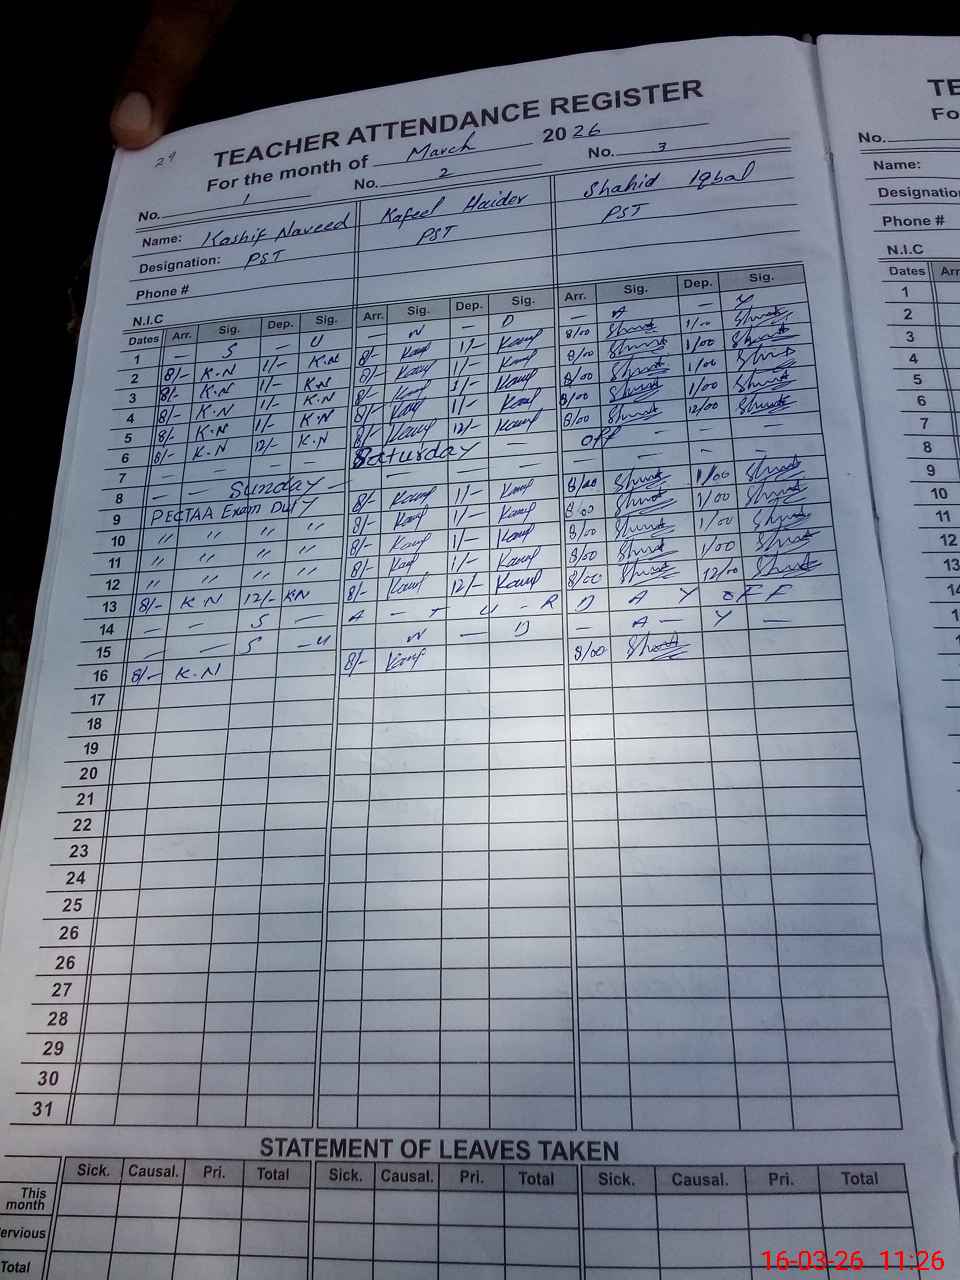 29
TEACHER ATTENDANCE REGISTER
For the month of March 2026
No. 1 No. 2 No. 3
Name: Kashif Naveed Kafeel Haider Shahid Iqbal
Designation: PST PST PST
Phone #
N.I.C
Dates Arr. Sig. Dep. Sig. Arr. Sig. Dep. Sig. Arr. Sig. Dep. Sig.
1 — S — U — N — D — A — Y
2 8/- K.N 1/- K.N 8/- 1/- 8/00 1/00
3 8/- K.N 1/- K.N 8/- 1/- 8/00 1/00
4 8/- K.N 1/- K.N 8/- 1/- 8/00 1/00
5 8/- K.N 1/- K.N 8/- 1/- 8/00 1/00
6 8/- K.N 12/- K.N 8/- 12/- 8/00 12/00
7 — — — — Saturday — off — — —
8 — — Sunday — — — — — — —
9 PECTAA Exam Duty 8/- 1/- 8/00 1/00
10 〃 〃 〃 〃 8/- 1/- 8/00 1/00
11 〃 〃 〃 〃 8/- 1/- 8/00 1/00
12 〃 〃 〃 〃 8/- 1/- 8/00 1/00
13 8/- K.N 12/- K.N 8/- 12/- 8/00 12/00
14 — — S — A — T U - R D A Y OFF
15 — — S — U N — D — A — Y —
16 8/- K.N 8/- 8/00
17
18
19
20
21
22
23
24
25
26
26
27
28
29
30
31
STATEMENT OF LEAVES TAKEN
Sick. Causal. Pri. Total Sick. Causal. Pri. Total Sick. Causal. Pri. Total
This month
ervious
Total
TE
Fo
No.
Name:
Designatio
Phone #
N.I.C
Dates Arr
1
2
3
4
5
6
7
8
9
10
11
12
13
14
16-03-26 11:26